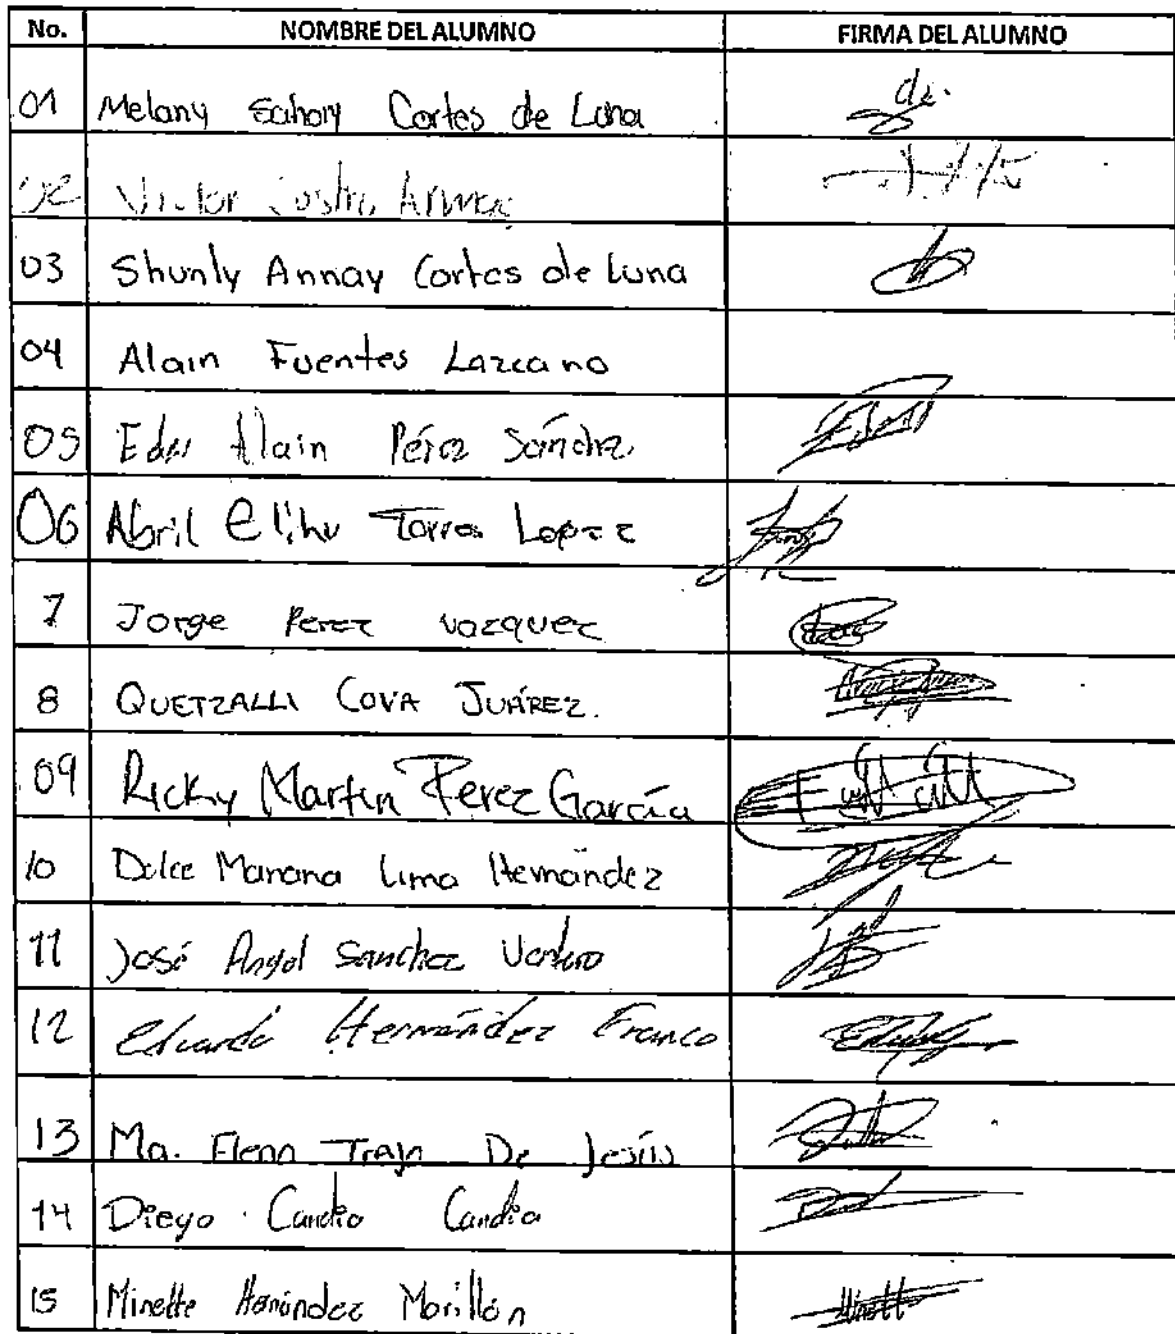 No. NOMBRE DEL ALUMNO FIRMA DEL ALUMNO
01 Melany Sahory Cortes de Luna
02 Victor Castro
03 Shunly Annay Cortes de Luna
04 Alain Fuentes Lazcano
05 Eder Alain Pérez Sánchez
06 Abril Elihu Torres Lopez
7 Jorge Perez vazquez
8 QUETZALLI COVA JUÁREZ.
09 Ricky Martin Perez García
10 Dulce Mariana Lima Hernández
11 José Angel Sanchez
12 Eduardo Hernández Franco
13 Ma. Elena De Jesús
14 Diego Candia Candia
15 Minette Hernández Morillón